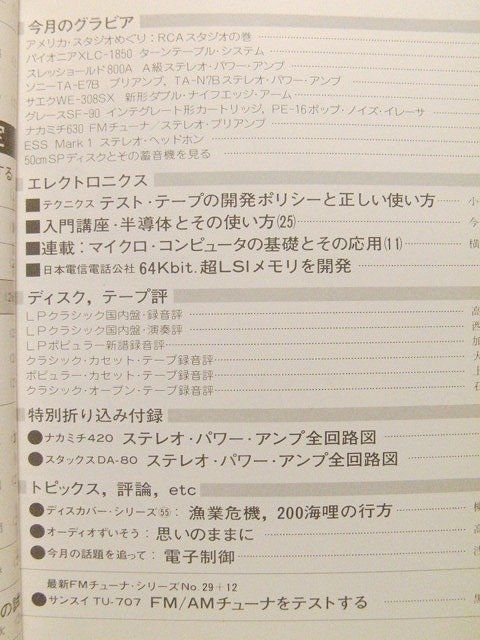 今月のグラビア
アメリカ・スタジオめぐり：RCAスタジオの巻
パイオニアXLC-1850 ターンテーブル・システム
スレッショールド800A A級ステレオ・パワー・アンプ
ソニーTA-E7B プリアンプ，TA-N7Bステレオ・パワー・アンプ
サエクWE-308SX 新形ダブル・ナイフエッジ・アーム
グレースSF-90 インテグレート形カートリッジ，PE-16ポップ・ノイズ・イレーサ
ナカミチ630 FMチューナ／ステレオ・プリアンプ
ESS Mark 1 ステレオ・ヘッドホン
50cmSPディスクとその蓄音機を見る
エレクトロニクス
■テクニクス テスト・テープの開発ポリシーと正しい使い方 小
■入門講座・半導体とその使い方(25) 今
■連載：マイクロ・コンピュータの基礎とその応用(11) 横
■日本電信電話公社 64Kbit.超LSIメモリを開発
ディスク，テープ評
LPクラシック国内盤・録音評 高
LPクラシック国内盤・演奏評 西
LPポピュラー新譜録音評 加
クラシック・カセット・テープ録音評 大
ポピュラー・カセット・テープ録音評 上
クラシック・オープン・テープ録音評 石
特別折り込み付録
●ナカミチ420 ステレオ・パワー・アンプ全回路図
●スタックスDA-80 ステレオ・パワー・アンプ全回路図
トピックス，評論，etc
●ディスカバー・シリーズ㊺：漁業危機，200海哩の行方
●オーディオずいそう：思いのままに 高
●今月の話題を追って：電子制御
最新FMチューナ・シリーズNo.29+12
●サンスイTU-707 FM/AMチューナをテストする 黒